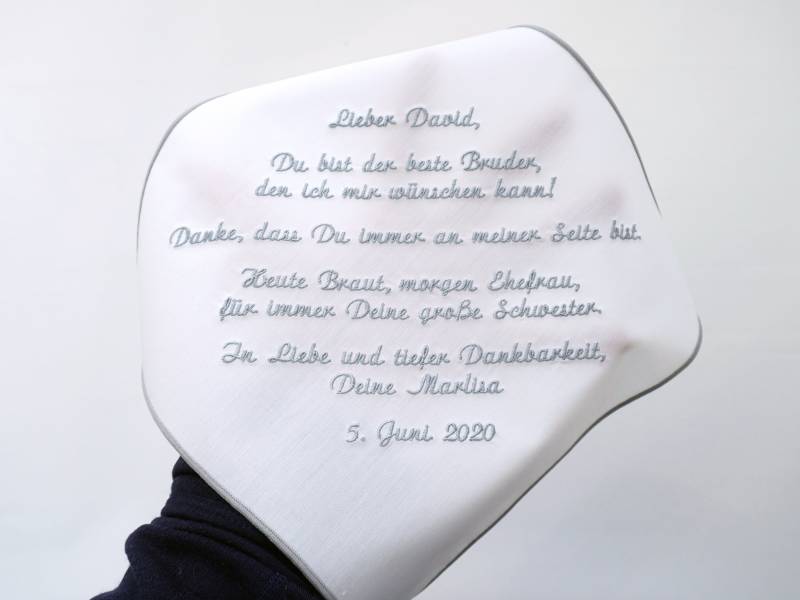 Lieber David,
Du bist der beste Bruder,
den ich mir wünschen kann!
Danke, dass Du immer an meiner Seite bist.
Heute Braut, morgen Ehefrau,
für immer Deine große Schwester.
In Liebe und tiefer Dankbarkeit,
Deine Marlisa
5. Juni 2020